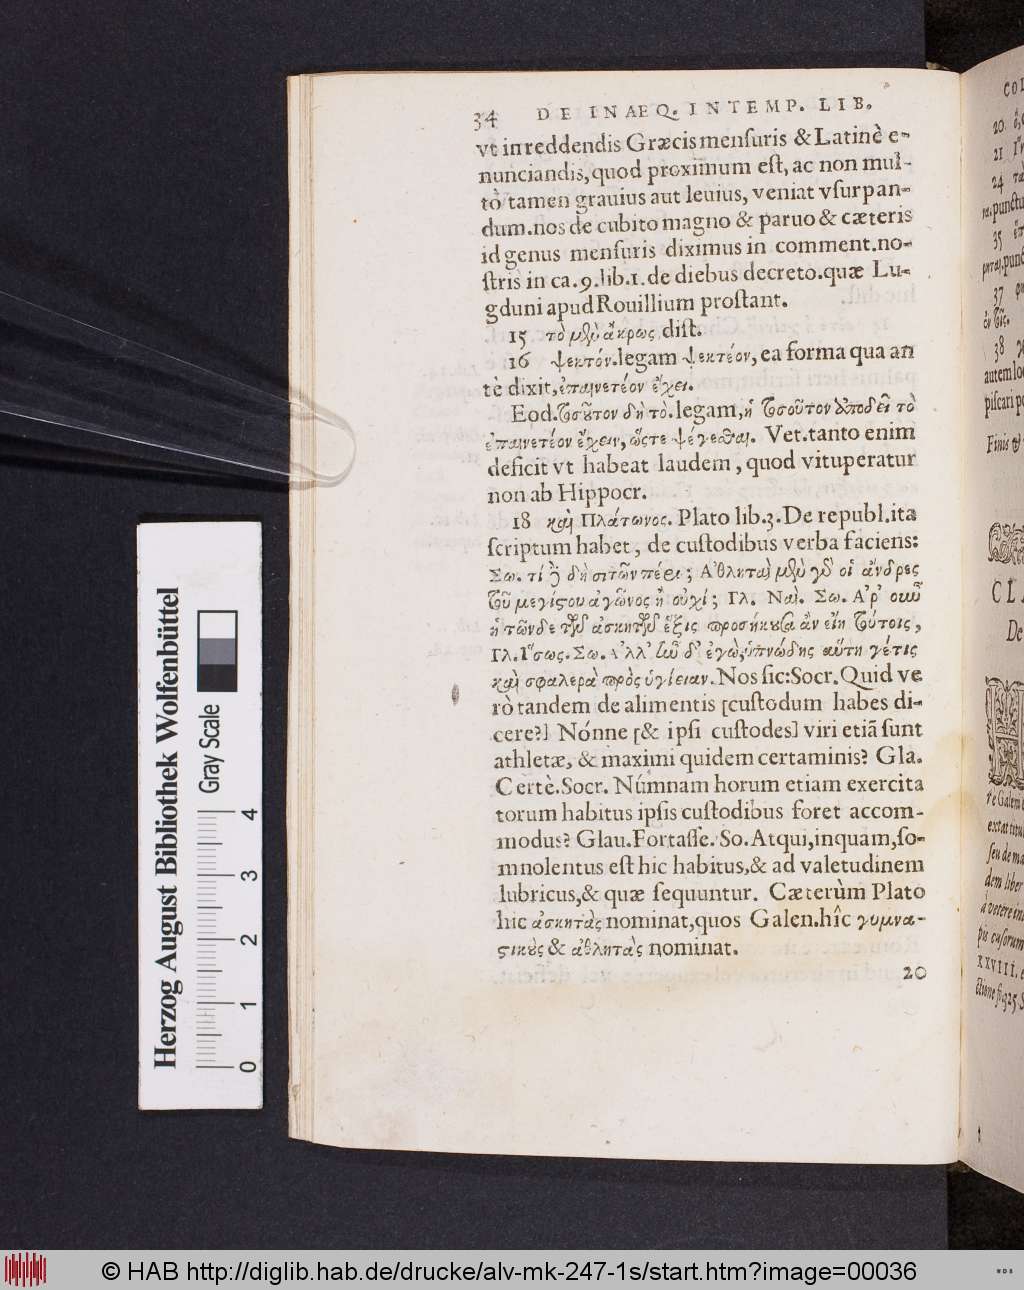 34 DE INAEQ. INTEMP. LIB.
vt in reddendis Græcis mensuris & Latinè e-
nunciandis, quod proximum est, ac non mul-
tò tamen grauius aut leuius, veniat vsurpan-
dum. nos de cubito magno & paruo & cæteris
id genus mensuris diximus in comment. no-
stris in ca. 9. lib. 1. de diebus decreto. quæ Lu-
gduni apud Rouillium prostant.
15 τὸ μὲν ἄκρως dist.
16 ψεκτόν. legam ψεκτέον, ea forma qua an
tè dixit, ἐπαινετέον ἔχει.
Eod. τοσοῦτον δὴ τὸ. legam, ἢ τοσοῦτον ἀποδεῖ τὸ
ἐπαινετέον ἔχειν, ὥστε ψέγεσθαι. Vet. tanto enim
deficit vt habeat laudem, quod vituperatur
non ab Hippocr.
18 καὶ Πλάτωνος. Plato lib. 3. De republ. ita
scriptum habet, de custodibus verba faciens:
Σω. τί δὲ δὴ σιτῶν πέρι; Ἀθληταὶ μὲν γὰρ οἱ ἄνδρες
τοῦ μεγίστου ἀγῶνος ἢ οὐχί; Γλ. Ναί. Σω. Ἆρ' οὖν
ἡ τῶνδε τῶν ἀσκητῶν ἕξις προσήκουσα ἂν εἴη τούτοις,
Γλ. Ἴσως. Σω. Ἀλλ' ἦν δ' ἐγώ, ὑπνώδης αὕτη γέ τις
καὶ σφαλερὰ πρὸς ὑγίειαν. Nos sic: Socr. Quid ve
rò tandem de alimentis [custodum habes di-
cere?] Nónne [& ipsi custodes] viri etiã sunt
athletæ, & maximi quidem certaminis? Gla.
Certè. Socr. Númnam horum etiam exercita
torum habitus ipsis custodibus foret accom-
modus? Glau. Fortasse. So. Atqui, inquam, so-
mnolentus est hic habitus, & ad valetudinem
lubricus, & quæ sequuntur. Cæterùm Plato
hic ἀσκητὰς nominat, quos Galen. hîc γυμνα-
στικοὺς & ἀθλητὰς nominat.
20
20
21
24
punctu
35
37
38
autem loc
piscari po
Finis &
De
XXVIII.
Herzog August Bibliothek Wolfenbüttel
Gray Scale
0 1 2 3 4
© HAB http://diglib.hab.de/drucke/alv-mk-247-1s/start.htm?image=00036